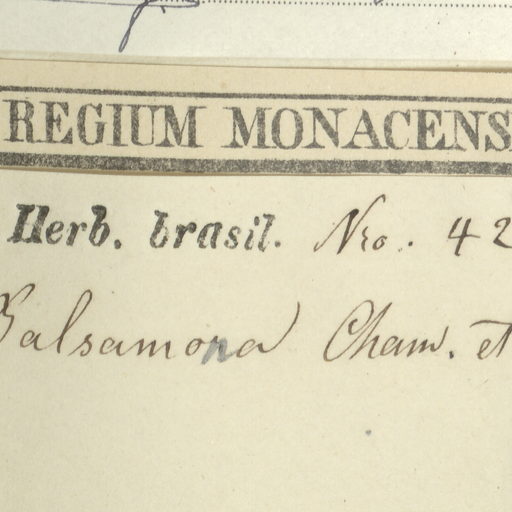 REGIUM MONACENS
Herb. brasil. Nro. 42
Balsamona Cham. et